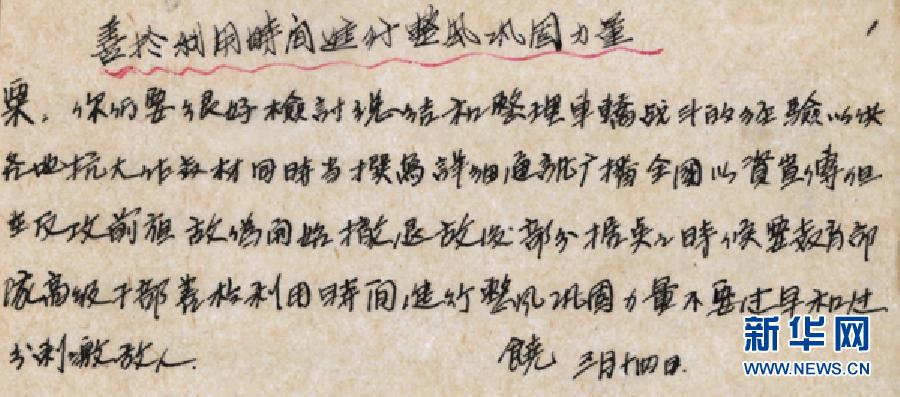 善於利用時間進行整風巩固力量
粟。你们要很好檢討总结和整理車橋战斗的经驗以供
各地抗大作教材同時当撰為詳细通訊广播全國以資宣傳但
在反攻前夜敌偽開始撤退敌後部分据点之時候要教育部
隊高级干部善於利用時間進行整风巩固力量不要过早和过
分刺激敌人.
饒 三月十四日.
新华网
WWW.NEWS.CN